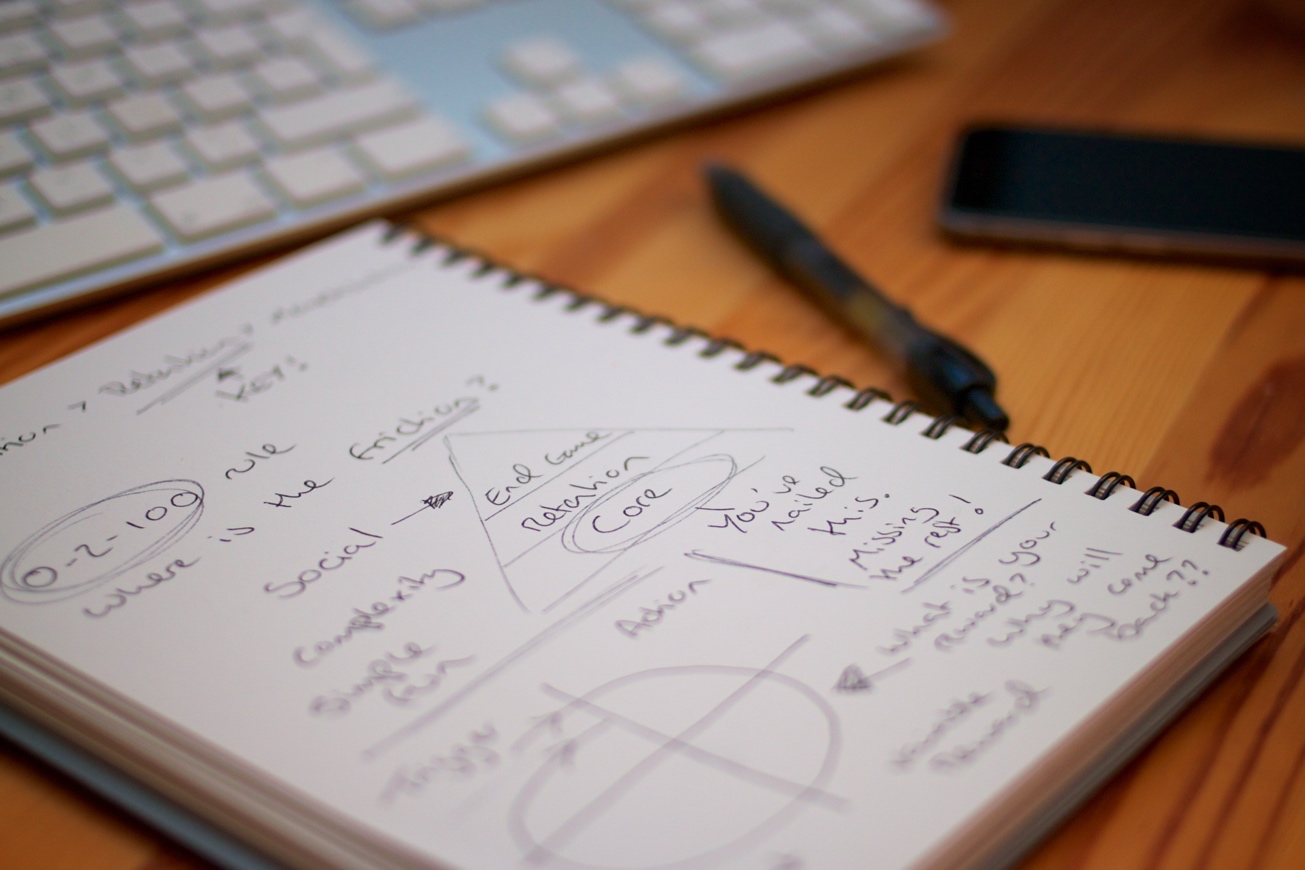 > Retention >
KEY!
0-2-100 rule
where is the friction?
Social
Complexity
Simple
fun
End Game
Retention
Core
You've
nailed
this.
Missing
the rest!
Action
Trigger
what is your
reward?
why will
they come
back??
Reward